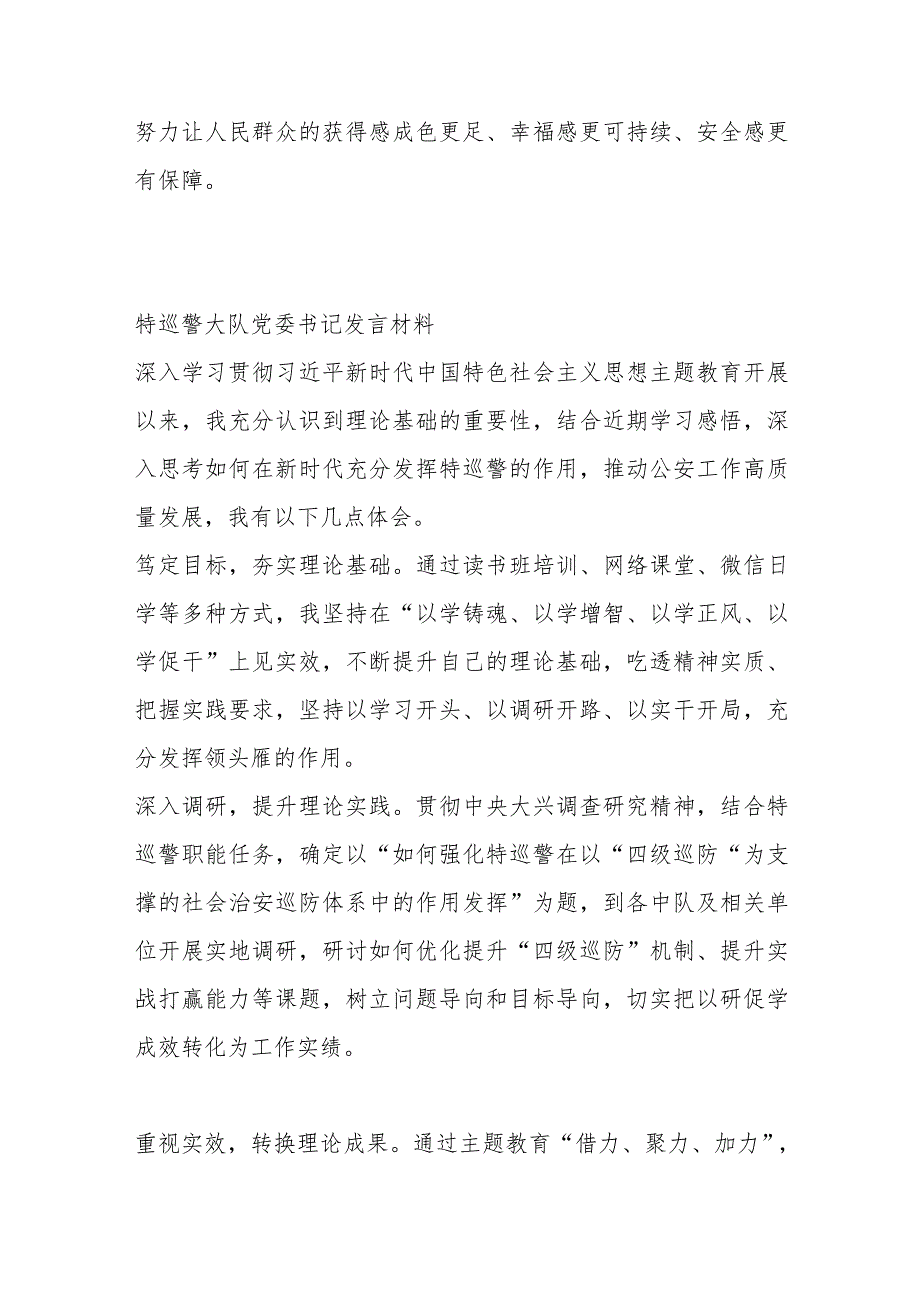 努力让人民群众的获得感成色更足、幸福感更可持续、安全感更
有保障。
特巡警大队党委书记发言材料
深入学习贯彻习近平新时代中国特色社会主义思想主题教育开展
以来，我充分认识到理论基础的重要性，结合近期学习感悟，深
入思考如何在新时代充分发挥特巡警的作用，推动公安工作高质
量发展，我有以下几点体会。
笃定目标，夯实理论基础。通过读书班培训、网络课堂、微信日
学等多种方式，我坚持在“以学铸魂、以学增智、以学正风、以
学促干”上见实效，不断提升自己的理论基础，吃透精神实质、
把握实践要求，坚持以学习开头、以调研开路、以实干开局，充
分发挥领头雁的作用。
深入调研，提升理论实践。贯彻中央大兴调查研究精神，结合特
巡警职能任务，确定以“如何强化特巡警在以“四级巡防“为支
撑的社会治安巡防体系中的作用发挥”为题，到各中队及相关单
位开展实地调研，研讨如何优化提升“四级巡防”机制、提升实
战打赢能力等课题，树立问题导向和目标导向，切实把以研促学
成效转化为工作实绩。
重视实效，转换理论成果。通过主题教育“借力、聚力、加力”，